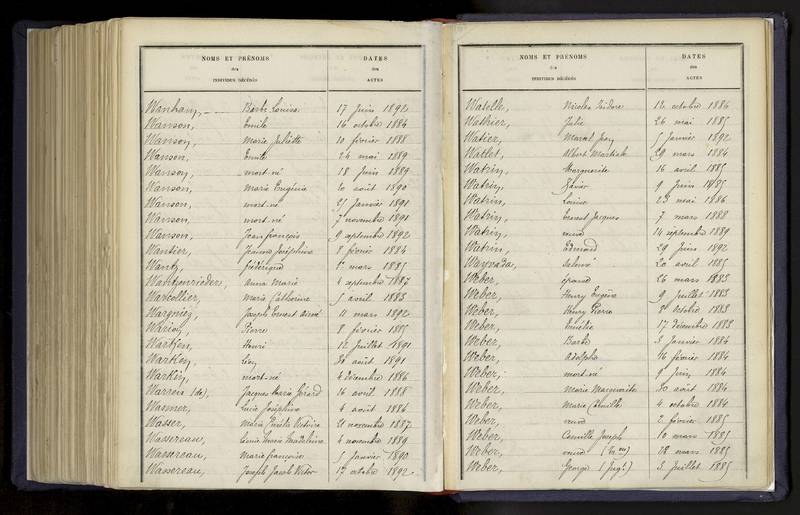 NOMS ET PRÉNOMS
des
INDIVIDUS DÉCÉDÉS
DATES
des
ACTES
Barbe Louise 17 Juin 1892
Wanson, Emile 16 octobre 1884
Wanson, Marie Juliette 10 février 1888
Wanson, Emile 24 mai 1889
Wanson, mort-né 18 Juin 1889
Wanson, Marie Eugénie 20 août 1890
Wanson, mort-né 25 Janvier 1891
Wanson, mort-né 7 novembre 1891
Wanson, Jean françois 9 septembre 1892
Wantier, Jeanne Joséphine 8 février 1884
Wantz, frédérique mars 1885
Wantzenrieder, anna Marie 4 septembre 1887
Warcollier, Marie Catherine 5 avril 1883
Wargniez, Joseph Ernest aimé 11 mars 1892
Warion, Pierre 8 février 1885
Henri 12 Juillet 1891
Léon 30 août 1891
mort-né 4 décembre 1886
Warren (de), Jacques Marie Girard 16 avril 1888
Wasmer, Lucie Joséphine 4 août 1886
Wasser, Marie Emilie Victoire 21 novembre 1887
Wassereau, Madeleine 4 novembre 1889
Wassereau, Marie françoise 5 Janvier 1890
Wassereau, Joseph Jacob Victor 17 octobre 1892.
NOMS ET PRÉNOMS
des
INDIVIDUS DÉCÉDÉS
DATES
des
ACTES
Watelle, Nicolas Isidore 12 octobre 1886
Wathier, Julie 26 mai 1885
Watier, 5 Janvier 1892
Watlet, Albert 29 mars 1884
Watrin, Marguerite 16 avril 1885
Watrin, Xavier 9 Juin 1885
Watrin, Louise 23 mai 1886
Watrin, Ernest Jacques 7 mars 1888
Watrin, 14 septembre 1889
Watrin, Edmond 29 Juin 1892
20 avril 1885
Weber, 26 mars 1883
Weber, Henry Eugène 9 Juillet 1883
Weber, Henry Pierre 8 octobre 1883
Weber, Emélie 17 décembre 1883
Weber, Barbe 8 Janvier 1884
Weber, Adolphe 16 février 1884
Weber, mort-né 9 Juin 1884
Weber, Marie Marguerite 30 août 1884
Weber, Marie Camille 4 octobre 1884
Weber, 2 février 1885
Weber, Camille Joseph 10 mars 1885
Weber, 28 mars 1885
Weber, George 3 Juillet 1885